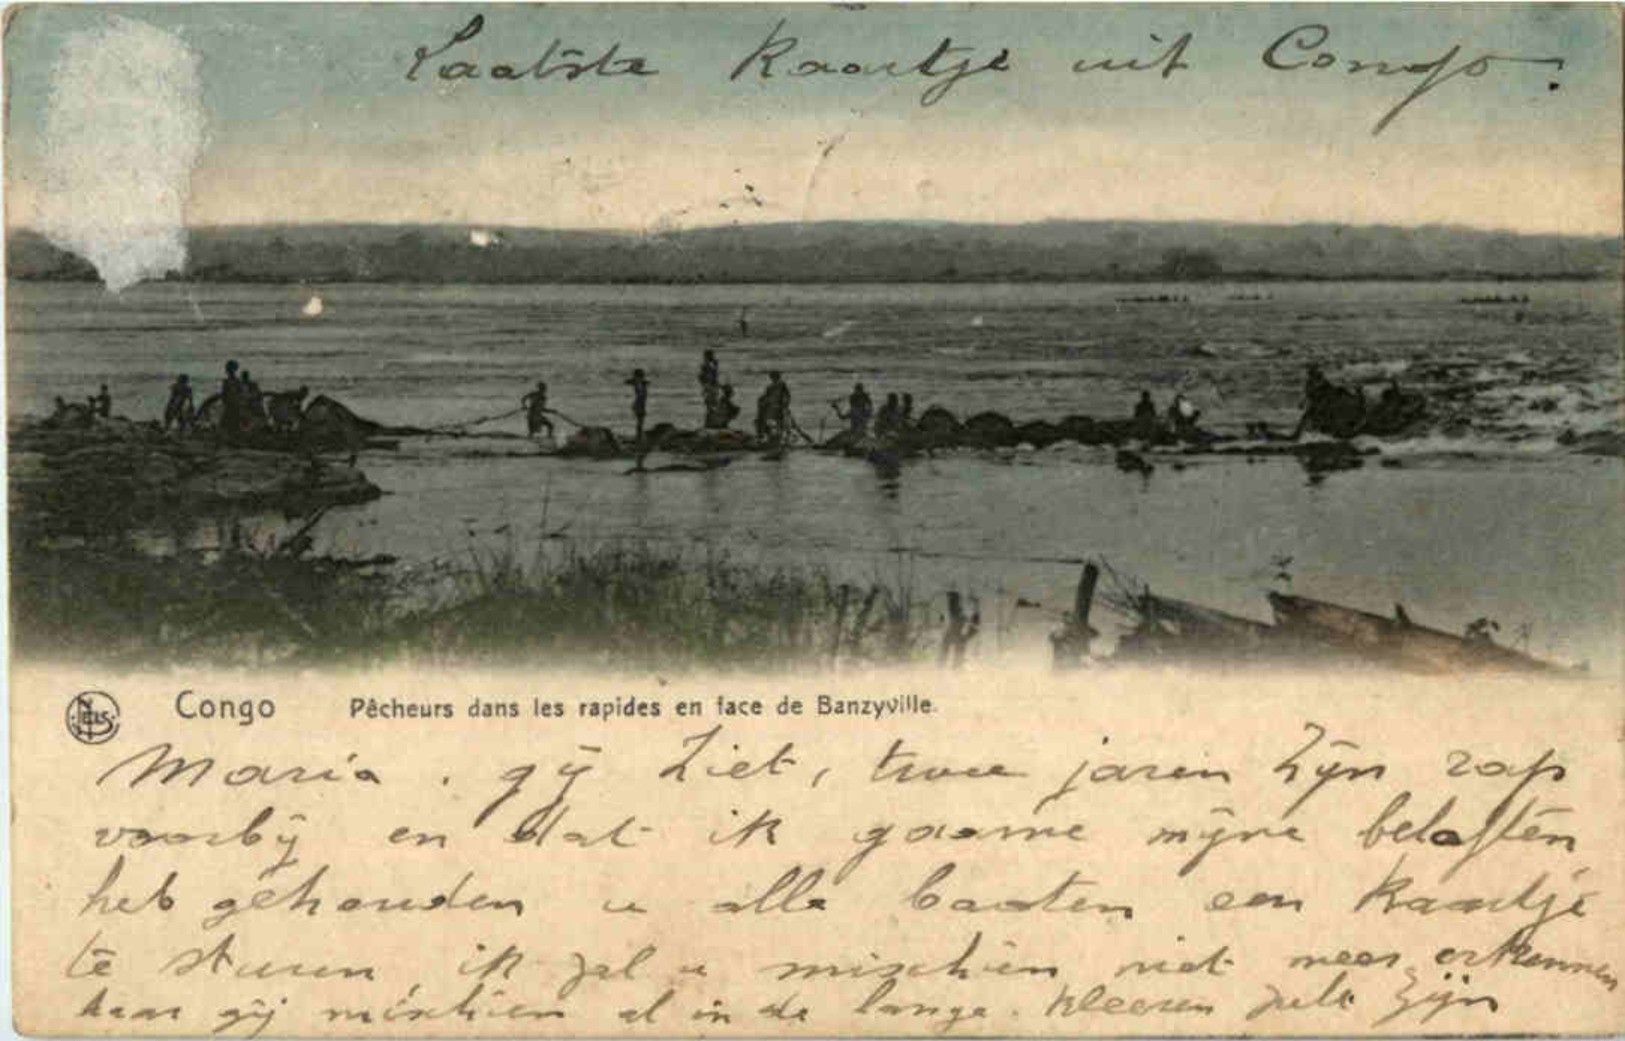 Laatste kaartje uit Congo:
Nels
Congo Pêcheurs dans les rapides en face de Banzyville.
Maria. gÿ ziet, twee jaren zÿn rap
voorbÿ en dat ik gaarne mÿne beloften
heb gehouden u alle booten een kaartje
te sturen, ik zal u mischien niet meer erkennen
daar gÿ mischien al in de lange kleeren zult zÿn